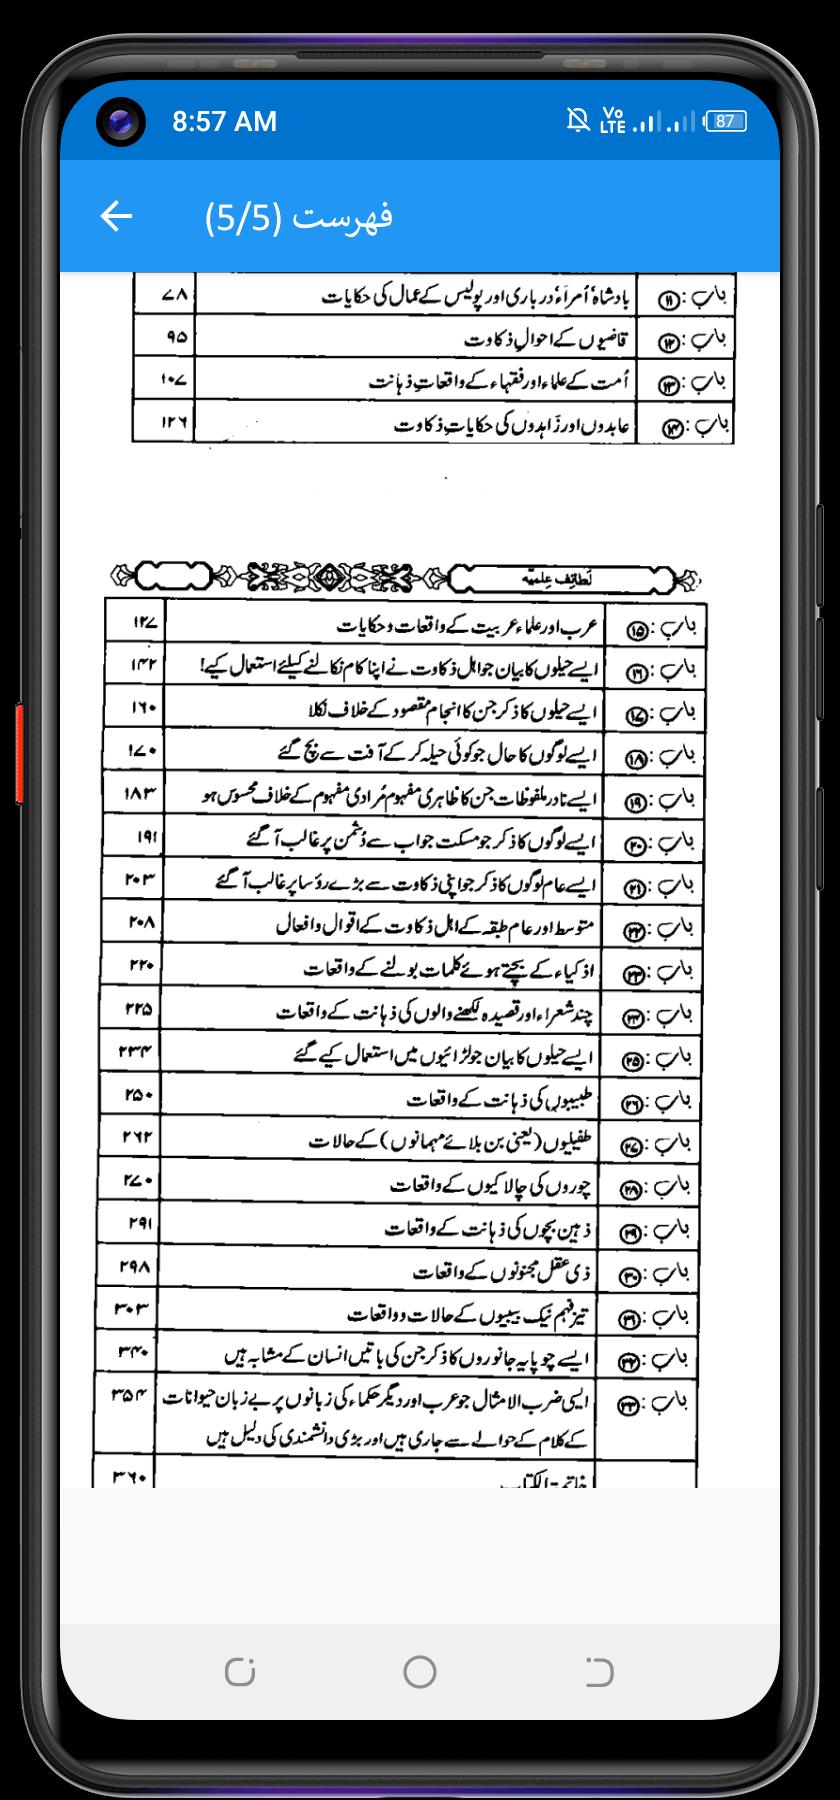 8:57 AM
Vo LTE
87
فهرست (5/5)
باب: ۱۱ بادشاہ' اُمراء' درباری اور پولیس کے عمال کی حکایات ۷۸
باب: ۱۲ قاضیوں کے احوالِ ذکاوت ۹۵
باب: ۱۳ اُمت کے علماء اور فقہاء کے واقعاتِ ذہانت ۱۰۷
باب: ۱۴ عابدوں اور زاہدوں کی حکایاتِ ذکاوت ۱۲۶
لطائف علمیہ
باب: ۱۵ عرب اور علماء عربیت کے واقعات و حکایات ۱۲۷
باب: ۱۶ ایسے حیلوں کا بیان جو اہل ذکاوت نے اپنا کام نکالنے کیلئے استعمال کیے! ۱۴۲
باب: ۱۷ ایسے حیلوں کا ذکر جن کا انجام مقصود کے خلاف نکلا ۱۶۰
باب: ۱۸ ایسے لوگوں کا حال جو کوئی حیلہ کر کے آفت سے بچ گئے ۱۷۰
باب: ۱۹ ایسے نادر ملفوظات جن کا ظاہری مفہوم مُرادی مفہوم کے خلاف محسوس ہو ۱۸۳
باب: ۲۰ ایسے لوگوں کا ذکر جو مسکت جواب سے دُشمن پر غالب آ گئے ۱۹۱
باب: ۲۱ ایسے عام لوگوں کا ذکر جو اپنی ذکاوت سے بڑے رؤسا پر غالب آ گئے ۲۰۳
باب: ۲۲ متوسط اور عام طبقہ کے اہل ذکاوت کے اقوال و افعال ۲۰۸
باب: ۲۳ اذکیاء کے بچتے ہوئے کلمات بولنے کے واقعات ۲۲۰
باب: ۲۴ چند شعراء اور قصیدہ لکھنے والوں کی ذہانت کے واقعات ۲۲۵
باب: ۲۵ ایسے حیلوں کا بیان جو لڑائیوں میں استعمال کیے گئے ۲۳۴
باب: ۲۶ طبیبوں کی ذہانت کے واقعات ۲۵۰
باب: ۲۷ طفیلیوں (یعنی بن بلائے مہمانوں) کے حالات ۲۶۲
باب: ۲۸ چوروں کی چالاکیوں کے واقعات ۲۷۰
باب: ۲۹ ذہین بچوں کی ذہانت کے واقعات ۲۹۱
باب: ۳۰ ذی عقل مجنونوں کے واقعات ۲۹۸
باب: ۳۱ تیز فہم نیک بیبیوں کے حالات و واقعات ۳۰۳
باب: ۳۲ ایسے چوپایہ جانوروں کا ذکر جن کی باتیں انسان کے مشابہ ہیں ۳۴۰
باب: ۳۳ ایسی ضرب الامثال جو عرب اور دیگر حکماء کی زبانوں پر بے زبان حیوانات ۳۵۴
کے کلام کے حوالے سے جاری ہیں اور بڑی دانشمندی کی دلیل ہیں
خاتمۃ الکتاب ۳۶۰